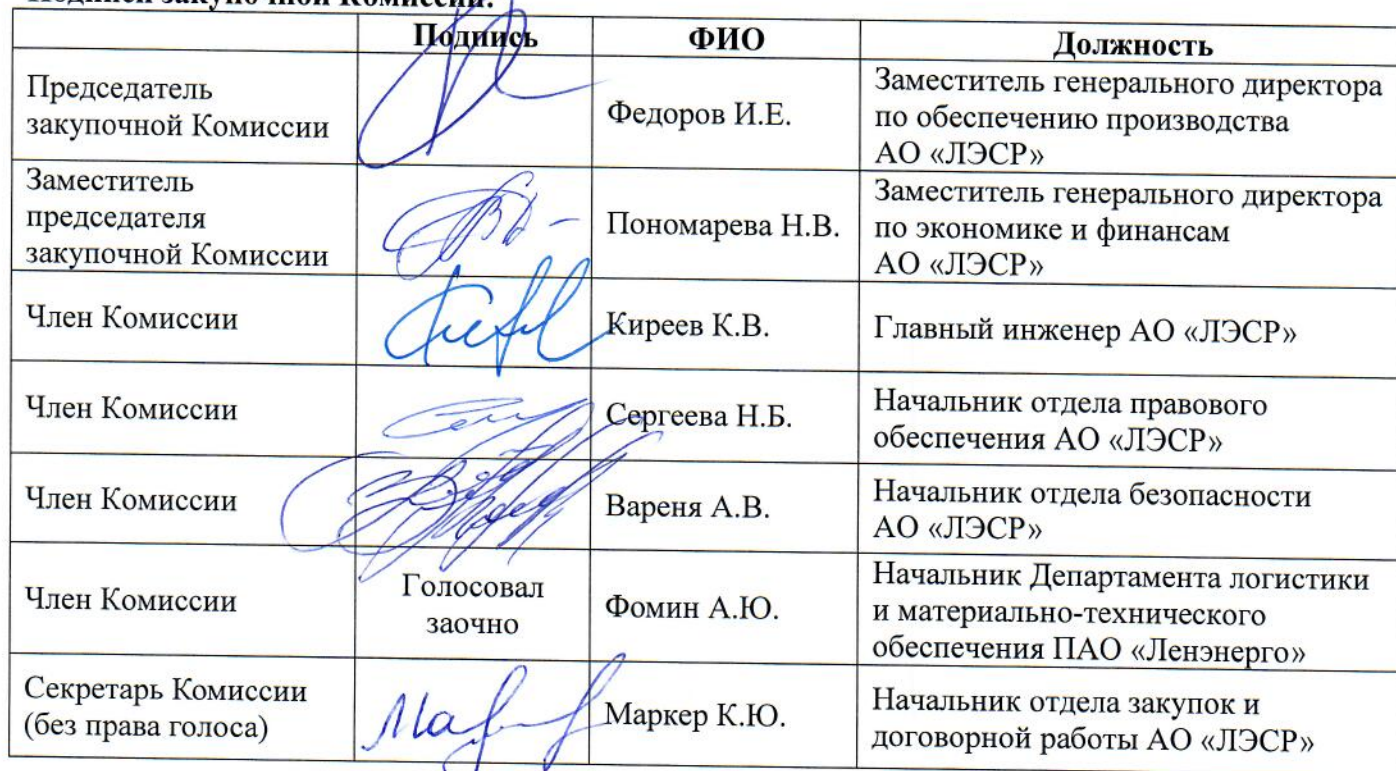 Подписи закупочной Комиссии:
Подпись ФИО Должность
Председатель
закупочной Комиссии
Федоров И.Е.
Заместитель генерального директора
по обеспечению производства
АО «ЛЭСР»
Заместитель
председателя
закупочной Комиссии
Пономарева Н.В.
Заместитель генерального директора
по экономике и финансам
АО «ЛЭСР»
Член Комиссии
Киреев К.В.
Главный инженер АО «ЛЭСР»
Член Комиссии
Сергеева Н.Б.
Начальник отдела правового
обеспечения АО «ЛЭСР»
Член Комиссии
Вареня А.В.
Начальник отдела безопасности
АО «ЛЭСР»
Член Комиссии
Голосовал
заочно
Фомин А.Ю.
Начальник Департамента логистики
и материально-технического
обеспечения ПАО «Ленэнерго»
Секретарь Комиссии
(без права голоса)
Маркер К.Ю.
Начальник отдела закупок и
договорной работы АО «ЛЭСР»